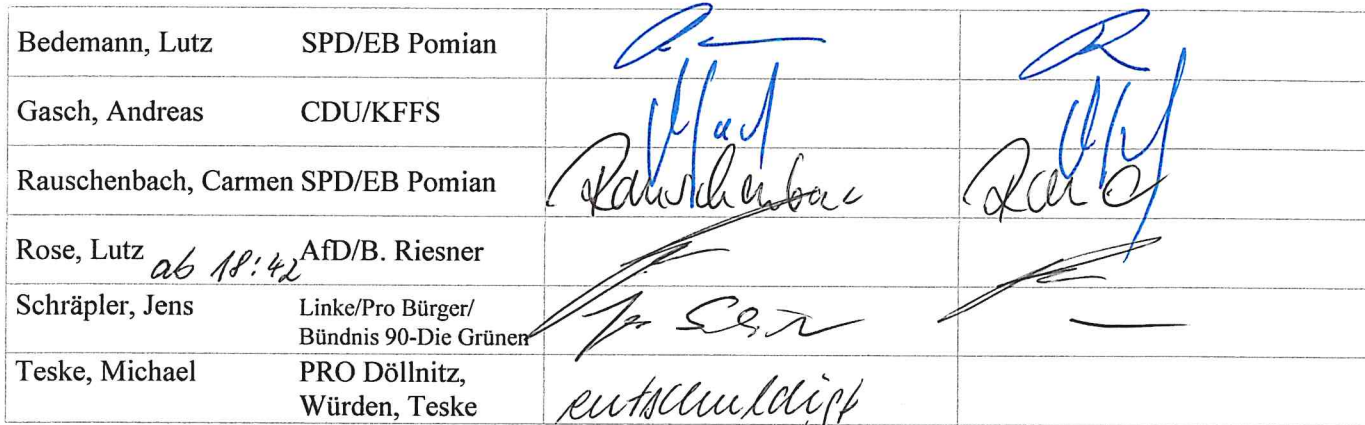 Bedemann, Lutz SPD/EB Pomian
Gasch, Andreas CDU/KFFS
Rauschenbach, Carmen SPD/EB Pomian Rauschenbac
Rose, Lutz ab 18:42 AfD/B. Riesner
Schräpler, Jens Linke/Pro Bürger/
Bündnis 90-Die Grünen
Teske, Michael PRO Döllnitz,
Würden, Teske entschuldigt